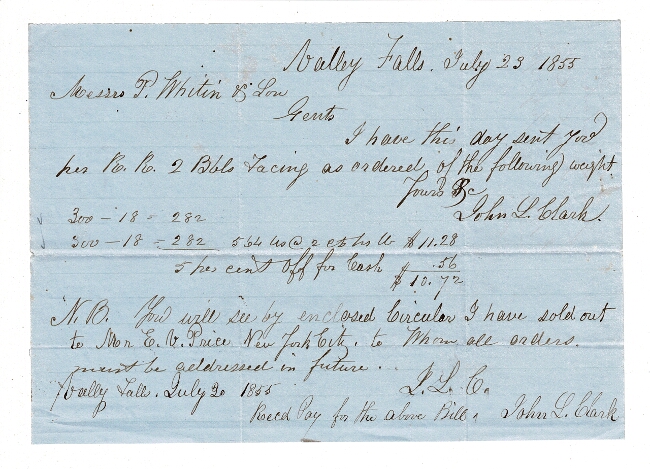 Valley Falls. July 23 1855
Messrs P. Whitin & Son
Gents
I have this day sent you
per R. R. 2 Bbls Facing as ordered of the following weight
Yours &c
John L. Clark.
300 – 18 = 282
300 – 18 = 282 564 lbs @ 2 cts per lb $ 11.28
5 per cent off for Cash $ .56
$ 10.72
N.B. You will see by enclosed Circular I have sold out
to Mr E. V. Price New York City, to Whom all orders.
must be addressed in future...
J. L. C.
Vally Fall. July 30 1855
Recd Pay for the above Bill. John L. Clark